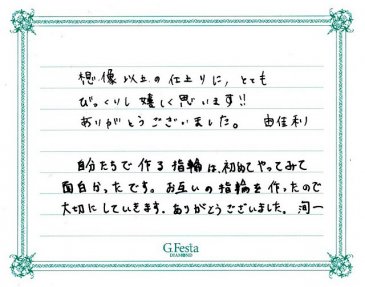 想像以上の仕上りに、とても
びっくりし嬉しく思います!!
ありがとうございました。 由佳利
自分たちで作る指輪は、初めてやってみて
面白かったです。お互いの指輪を作ったので
大切にしていきます。ありがとうございました。洵一
G.Festa
DIAMOND